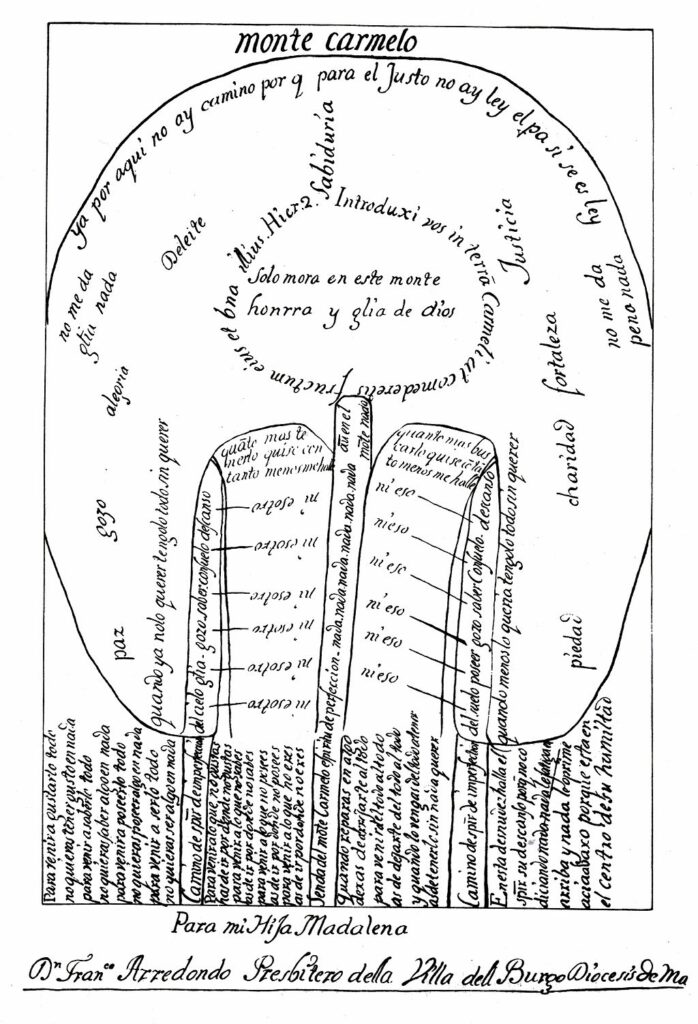 monte carmelo
Ya por aqui no ay camino por q para el Justo no ay ley el pa si se es ley
Sabiduria
Justicia
fortaleza
charidad
piedad
Deleite
alegria
gozo
paz
no me da
glia nada
no me da
pena nada
Introduxi vos in terrã Carmeli ut comederetis fructum eius et bna illius. Hier. 2.
Solo mora en este monte
honrra y glia de dios
quãto mas te
nerlo quise con
tanto menos me halle
aũ en el
mõte nada
quanto mas bus
carlo quise cõ tã
to menos me halle
ni esotro
ni esotro
ni esotro
ni esotro
ni esotro
ni esotro
ni eso
ni eso
ni eso
ni eso
ni eso
ni eso
quando ya no lo querer tengolo todo sin querer
del cielo glia - gozo saber consuelo descanso
Senda del mõte Carmelo espiritu de perfeccion - nada. nada. nada. nada. nada. nada
del suelo poseer gozo saber Consuelo. descanso
quando menos lo queria tengolo todo sin querer
Para venir a gustarlo todo
no quieras tener gusto en nada
para venir a saberlo todo
no quieras saber algo en nada
para venir a poseerlo todo
no quieras poseer algo en nada
para venir a serlo todo
no quieras ser algo en nada
Camino de spũ de imperfeccion
Para venir a lo que no gustas
has de ir por donde no gustas
para venir a lo que no sabes
as de ir por donde no sabes
para venir a lo que no posees
as de ir por donde no posees
para venir a lo que no eres
as de ir por donde no eres
quando reparas en algo
dexas de arrojarte al todo
para venir de todo al todo
as de dejarte del todo al todo
y quando lo vengas del todo a tener
as de tenerlo sin nada querer
Camino de spũ de imperfeccion
En esta desnudez halla el
spũ su descanso porq no co
diciando nada nada le
arriba y nada le oprime
acia abaxo porque esta en
el centro de su humildad
Para mi Hija Madalena
Dn Franco Arredondo Presbitero della Villa dell Burgo Diocesis de Ma